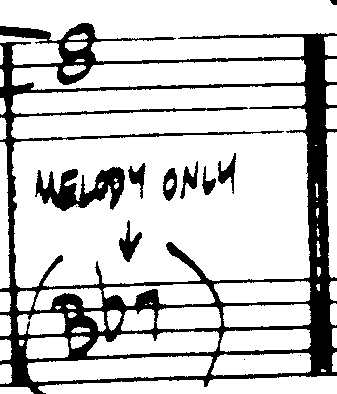 8
MELODY ONLY
↓
(Bb7)